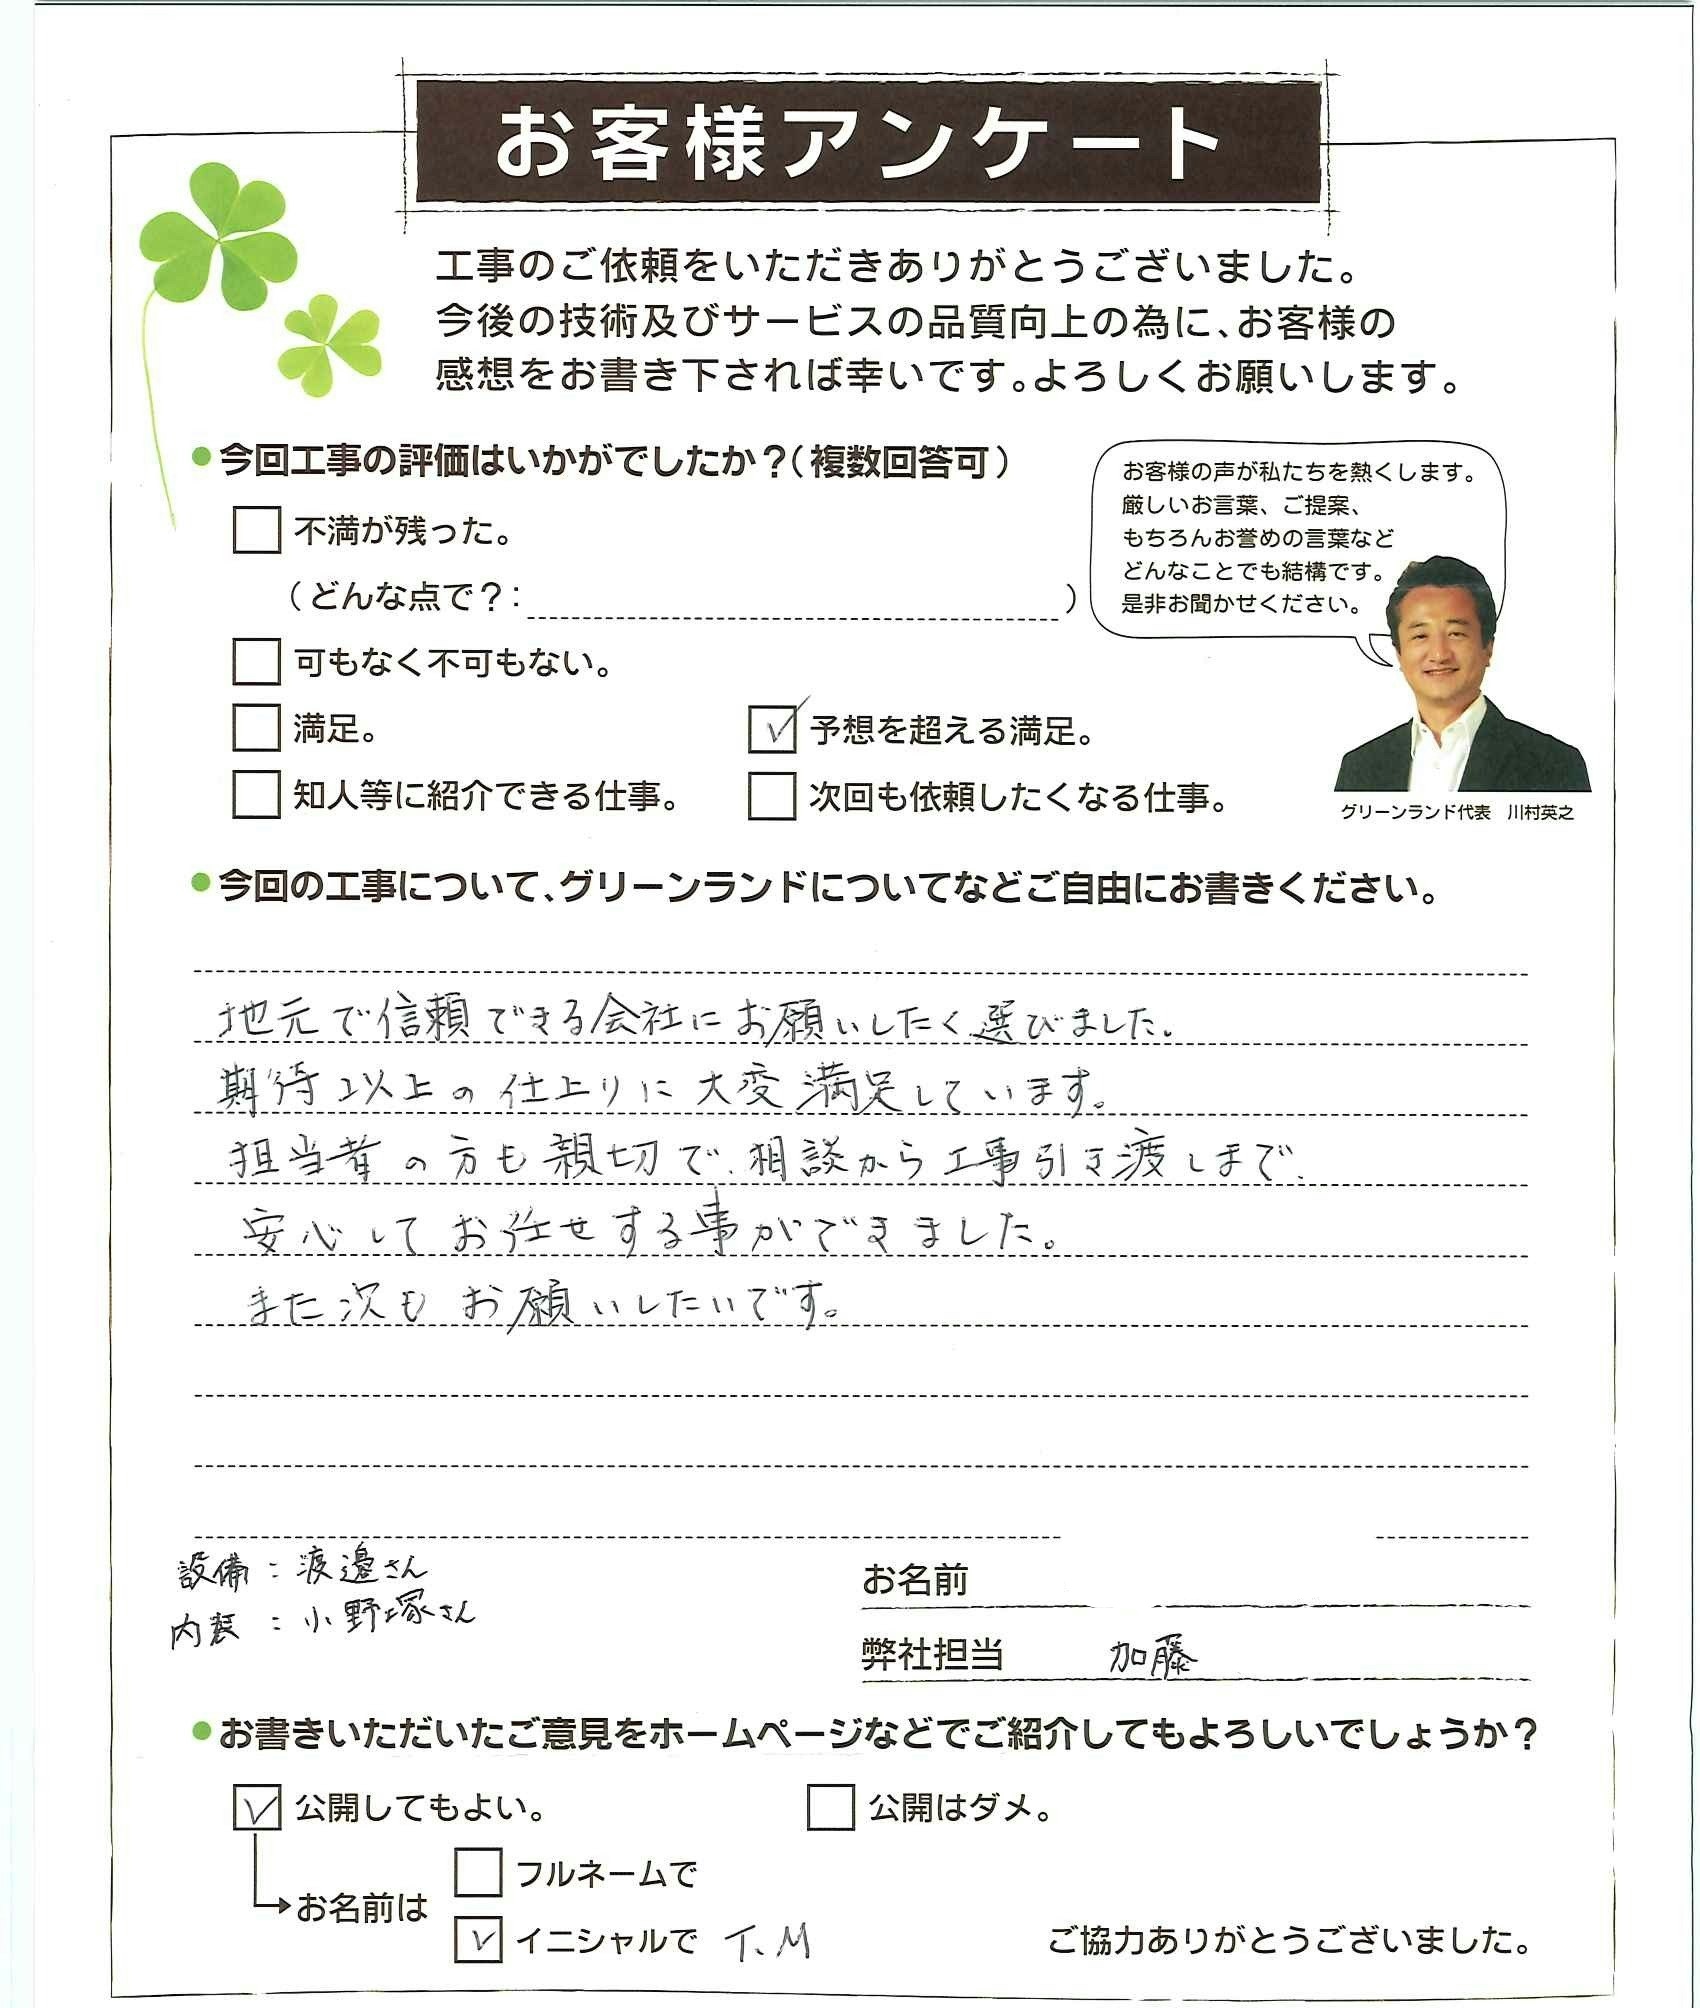 お客様アンケート
工事のご依頼をいただきありがとうございました。
今後の技術及びサービスの品質向上の為に、お客様の
感想をお書き下されば幸いです。よろしくお願いします。
今回工事の評価はいかがでしたか？（複数回答可）
不満が残った。
（どんな点で？： ）
可もなく不可もない。
満足。
予想を超える満足。
知人等に紹介できる仕事。
次回も依頼したくなる仕事。
お客様の声が私たちを熱くします。
厳しいお言葉、ご提案、
もちろんお誉めの言葉など
どんなことでも結構です。
是非お聞かせください。
グリーンランド代表　川村英之
今回の工事について、グリーンランドについてなどご自由にお書きください。
地元で信頼できる会社にお願いしたく選びました。
期待以上の仕上りに大変満足しています。
担当者の方も親切で、相談から工事引き渡しまで、
安心してお任せする事ができました。
また次もお願いしたいです。
設備：渡邉さん
内装：小野塚さん
お名前
弊社担当 加藤
お書きいただいたご意見をホームページなどでご紹介してもよろしいでしょうか？
公開してもよい。
公開はダメ。
お名前は
フルネームで
イニシャルで T.M
ご協力ありがとうございました。